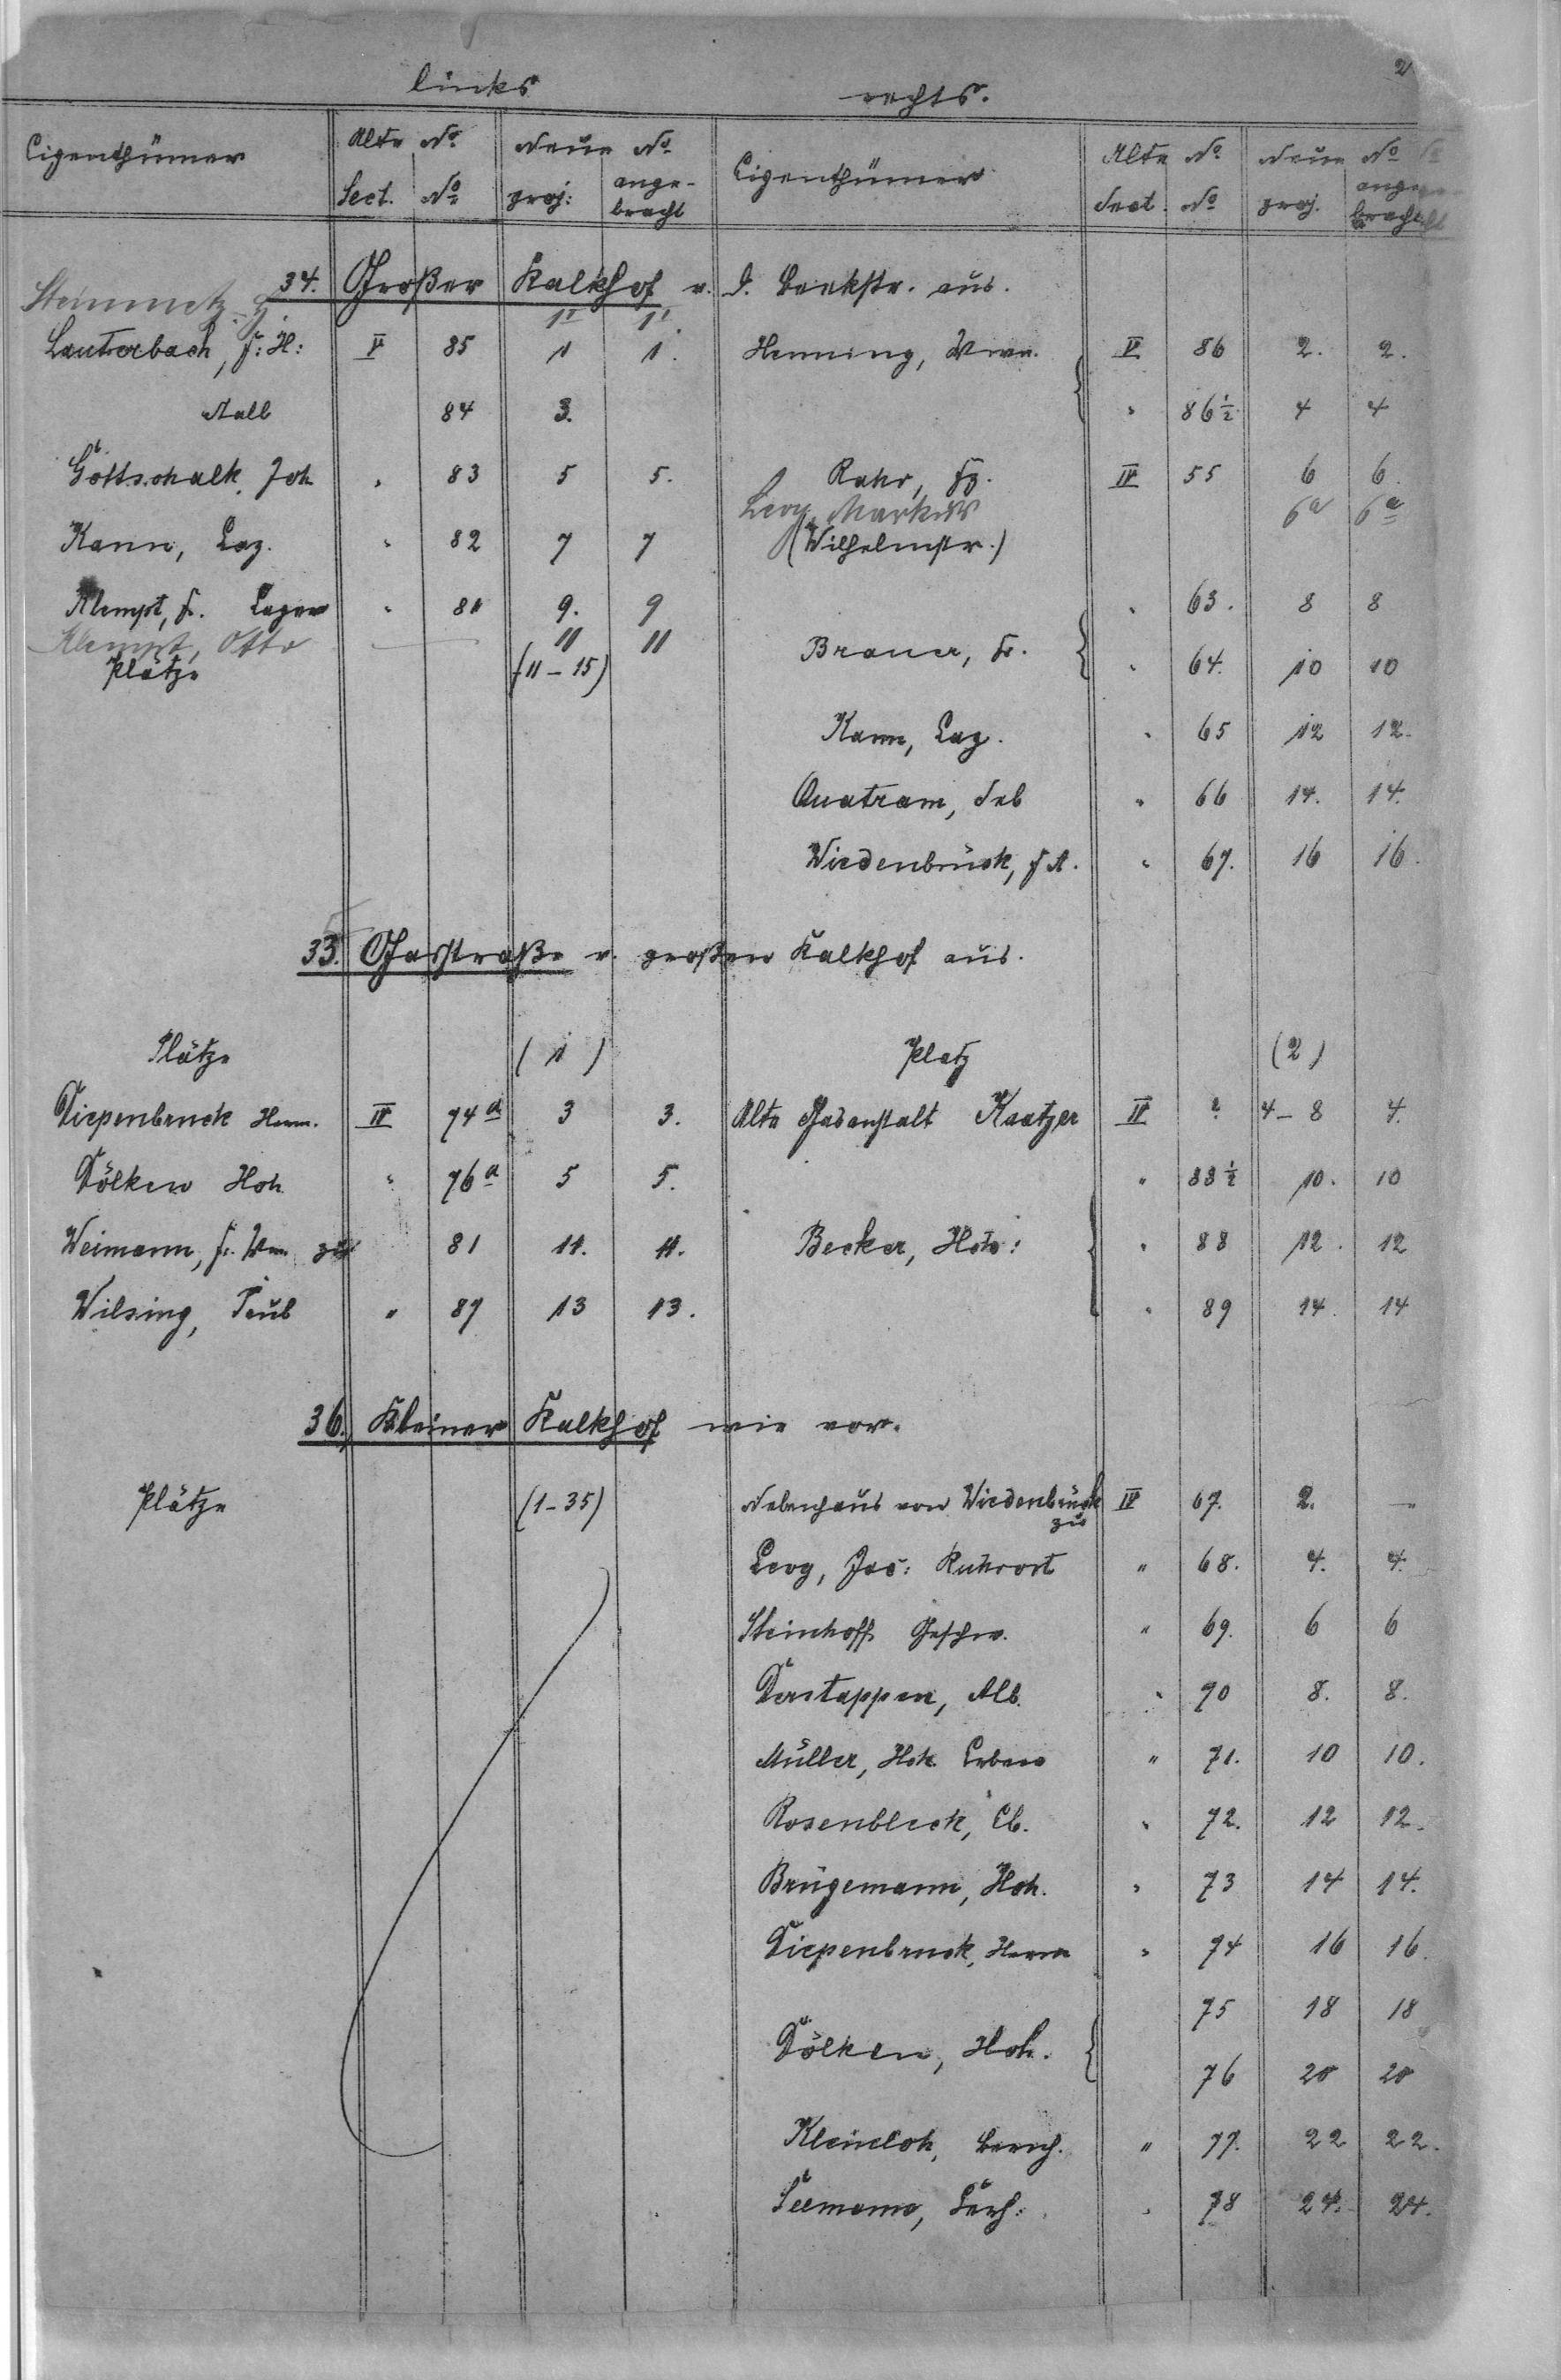 2
links rechts.
Eigenthümer Alte No Neue No Eigenthümer Alte No Neue No
Sect. No proj: ange- Sect. No proj. ange-
bracht bracht
34. Großer Kalkhof v. d. Beekstr. aus.
Steinmetz 1' 1'
Lauterbach, F: H: V 85 1 1. Henning, Wwe. V 86 2. 2.
84 3. " 86½ 4 4
Gottschalk, Joh " 83 5 5. Rahr, IV 55 6 6.
Levy Markus 6a 6a
Kann, Laz. " 82 7 7 (Wilhelmstr.)
Klempt, Fr. Lager " 81 9. 9 " 63. 8 8
Klempt, Otto 11 11 Brauer, Fr.
Plätze (11-15) " 64. 10 10
Kann, Laz. " 65 12 12.
Quatram, Seb " 66 14. 14.
Wiedenbrück, F A. " 67. 16 16.
35. Gasstraße v. großen Kalkhof aus.
Plätze (1) Platz (2)
Diepenbruck Herm. IV 74a 3 3. Alte Gasanstalt Kaatzer IV ? 4-8 4.
Dölken Hch " 76a 5 5. " 83½ 10. 10
Weimann, Fr. Wm. 81 11. 11. Becker, Hch: " 88 12. 12
Wilsing, Teub " 87 13 13. " 89 14. 14
36. Kleiner Kalkhof wie vor.
Plätze (1-35) Nebenhaus von Wiedenbrück IV 67. 2. —
zu
Levy, Jac: Ruhrort " 68. 4. 4.
Steinhoff Geschw. " 69. 6 6
Terstappen, Alb. " 70 8. 8.
Müller, Hch. Erben " 71. 10 10.
Rosenbleck, Eb. " 72. 12 12.
Brügemann, Hch. " 73 14 14.
Diepenbruck, Herm " 74 16 16.
75 18 18
Dölken, Hch.
76 20 20
Kleineloh, Bernh. " 77. 22 22.
Seemann, Ferd: " 78 24. 24.